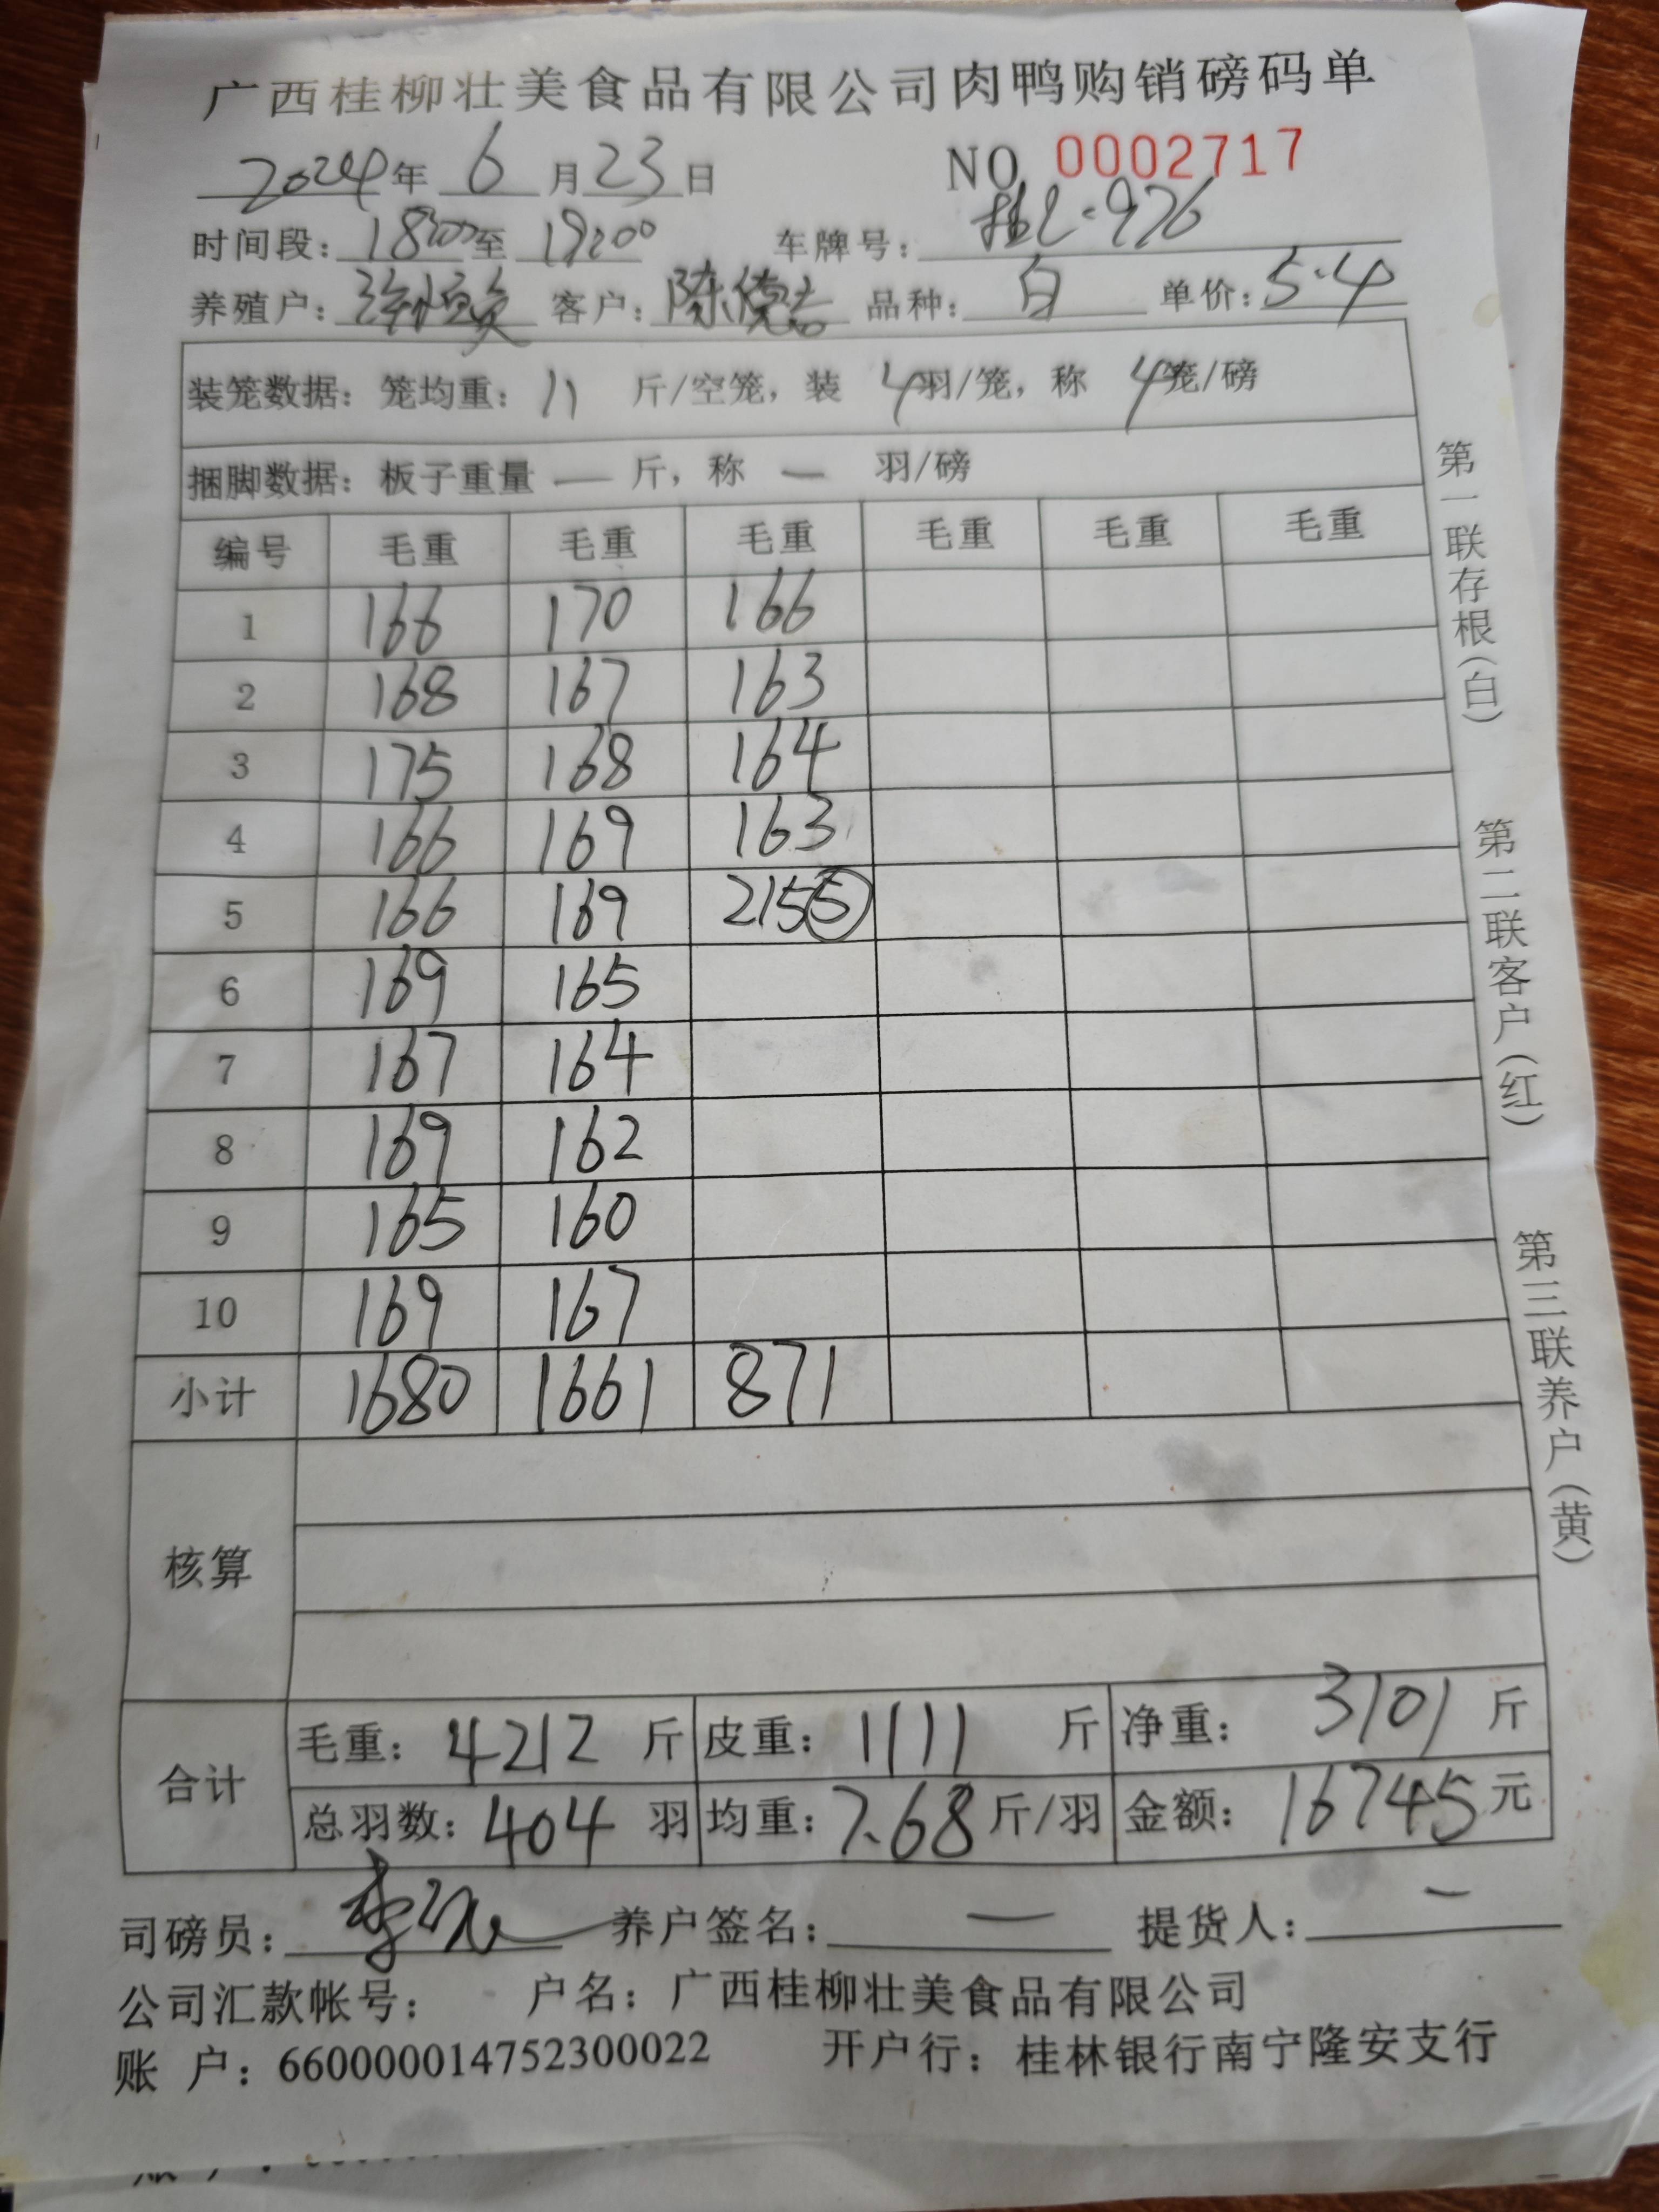 广西桂柳壮美食品有限公司肉鸭购销磅码单
2024年 6 月 23 日 NO 0002717
时间段: 18:00 至 19:00 车牌号: 976
养殖户: 客户: 陈德 品种: 白 单价: 5.4
装笼数据: 笼均重: 11 斤/空笼, 装 4 羽/笼, 称 4 笼/磅
捆脚数据: 板子重量 — 斤, 称 — 羽/磅
编号 毛重 毛重 毛重 毛重 毛重 毛重
1 166 170 166
2 168 167 163
3 175 168 164
4 166 169 163
5 166 169 215⑤
6 169 165
7 167 164
8 169 162
9 165 160
10 169 167
小计 1680 1661 871
核算
合计 毛重: 4212 斤 皮重: 1111 斤 净重: 3101 斤
总羽数: 404 羽 均重: 7.68 斤/羽 金额: 16745 元
司磅员: 李 养户签名: — 提货人: —
公司汇款帐号: 户名: 广西桂柳壮美食品有限公司
账 户: 660000014752300022 开户行: 桂林银行南宁隆安支行
第一联存根(白) 第二联客户(红) 第三联养户(黄)